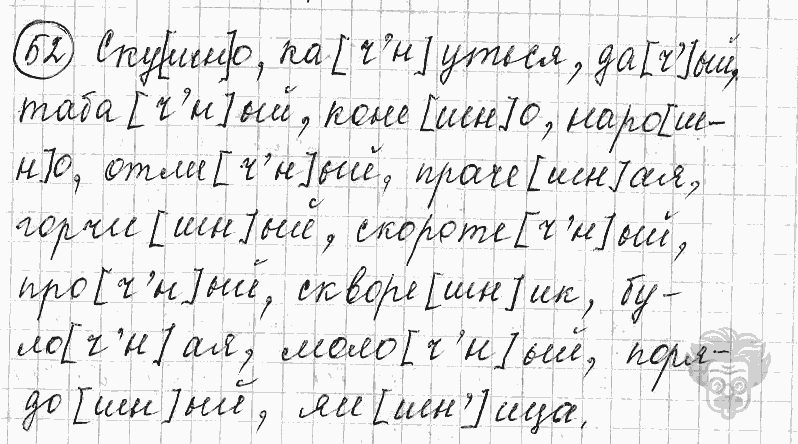 52 Ску[шн]о, ка[ч’н]уться, да[ч’]ый,
таба[ч’н]ый, коне[шн]о, наро[ш-
н]о, отли[ч’н]ый, праче[шн]ая,
горчи[шн]ый, скороте[ч’н]ый,
про[ч’н]ый, скворе[шн]ик, бу-
ло[ч’н]ая, моло[ч’н]ый, поря-
до[шн]ый, яи[шн’]ица.